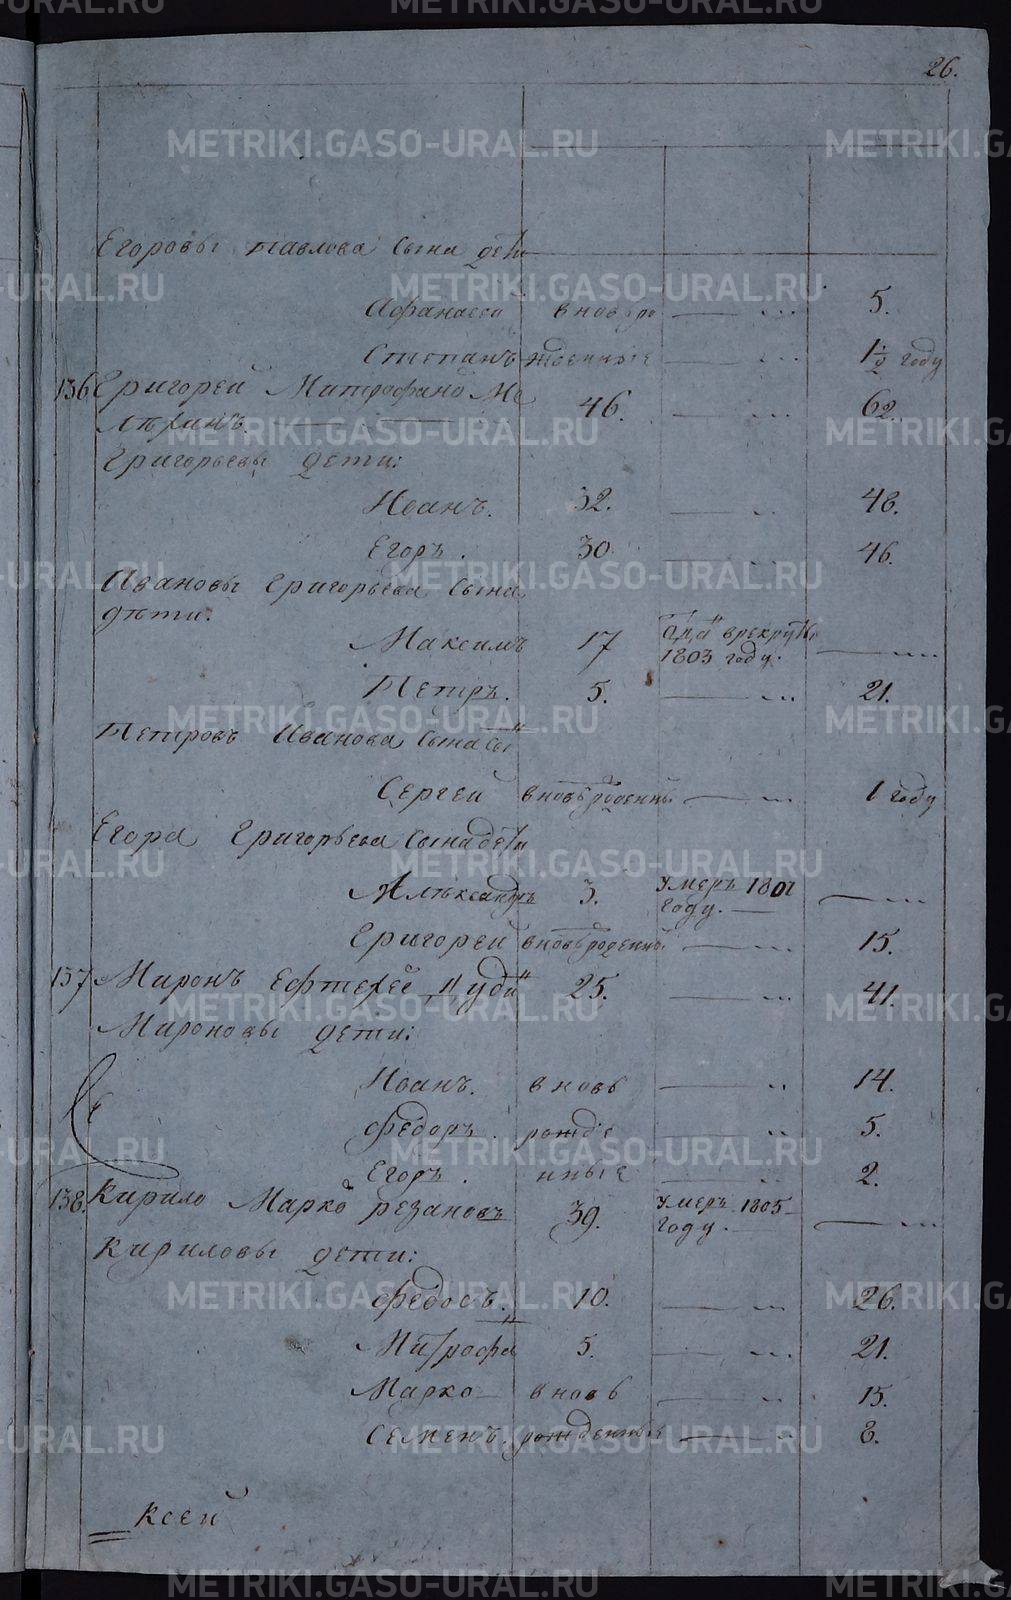 26.
Егоровы Павлова сына дети
Афанасей вновь ро 5.
Степанъ жденные 1½ году
136 Григорей Митрофано Ме 46. 62.
лѣхинъ.
Григорьевы дети:
Иванъ. 32. 48.
Егоръ. 30. 46.
Ивановы Григорьева сына
дѣти:
Максимъ 17 врекруты
1803 году.
Петръ. 5. 21.
Петровъ Иванова сына сы
Сергей вновьрожденны 1 году
Егора Григорьева сына дети
Александръ 3. умеръ 1801
году.
Григорей вновьрожденны 15.
137 Миронъ 25. 41.
Мироновы дети:
Иванъ. вновь 14.
Федоръ. рожде 5.
Егоръ. нные 2.
138. Кирило Марко Резановъ 39. умеръ 1805
году.
Кириловы дети:
Федосъ. 10. 26.
Митрофа 5. 21.
Марко вновь 15.
Семенъ. рожденные 8.
ксей
METRIKI.GASO-URAL.RU